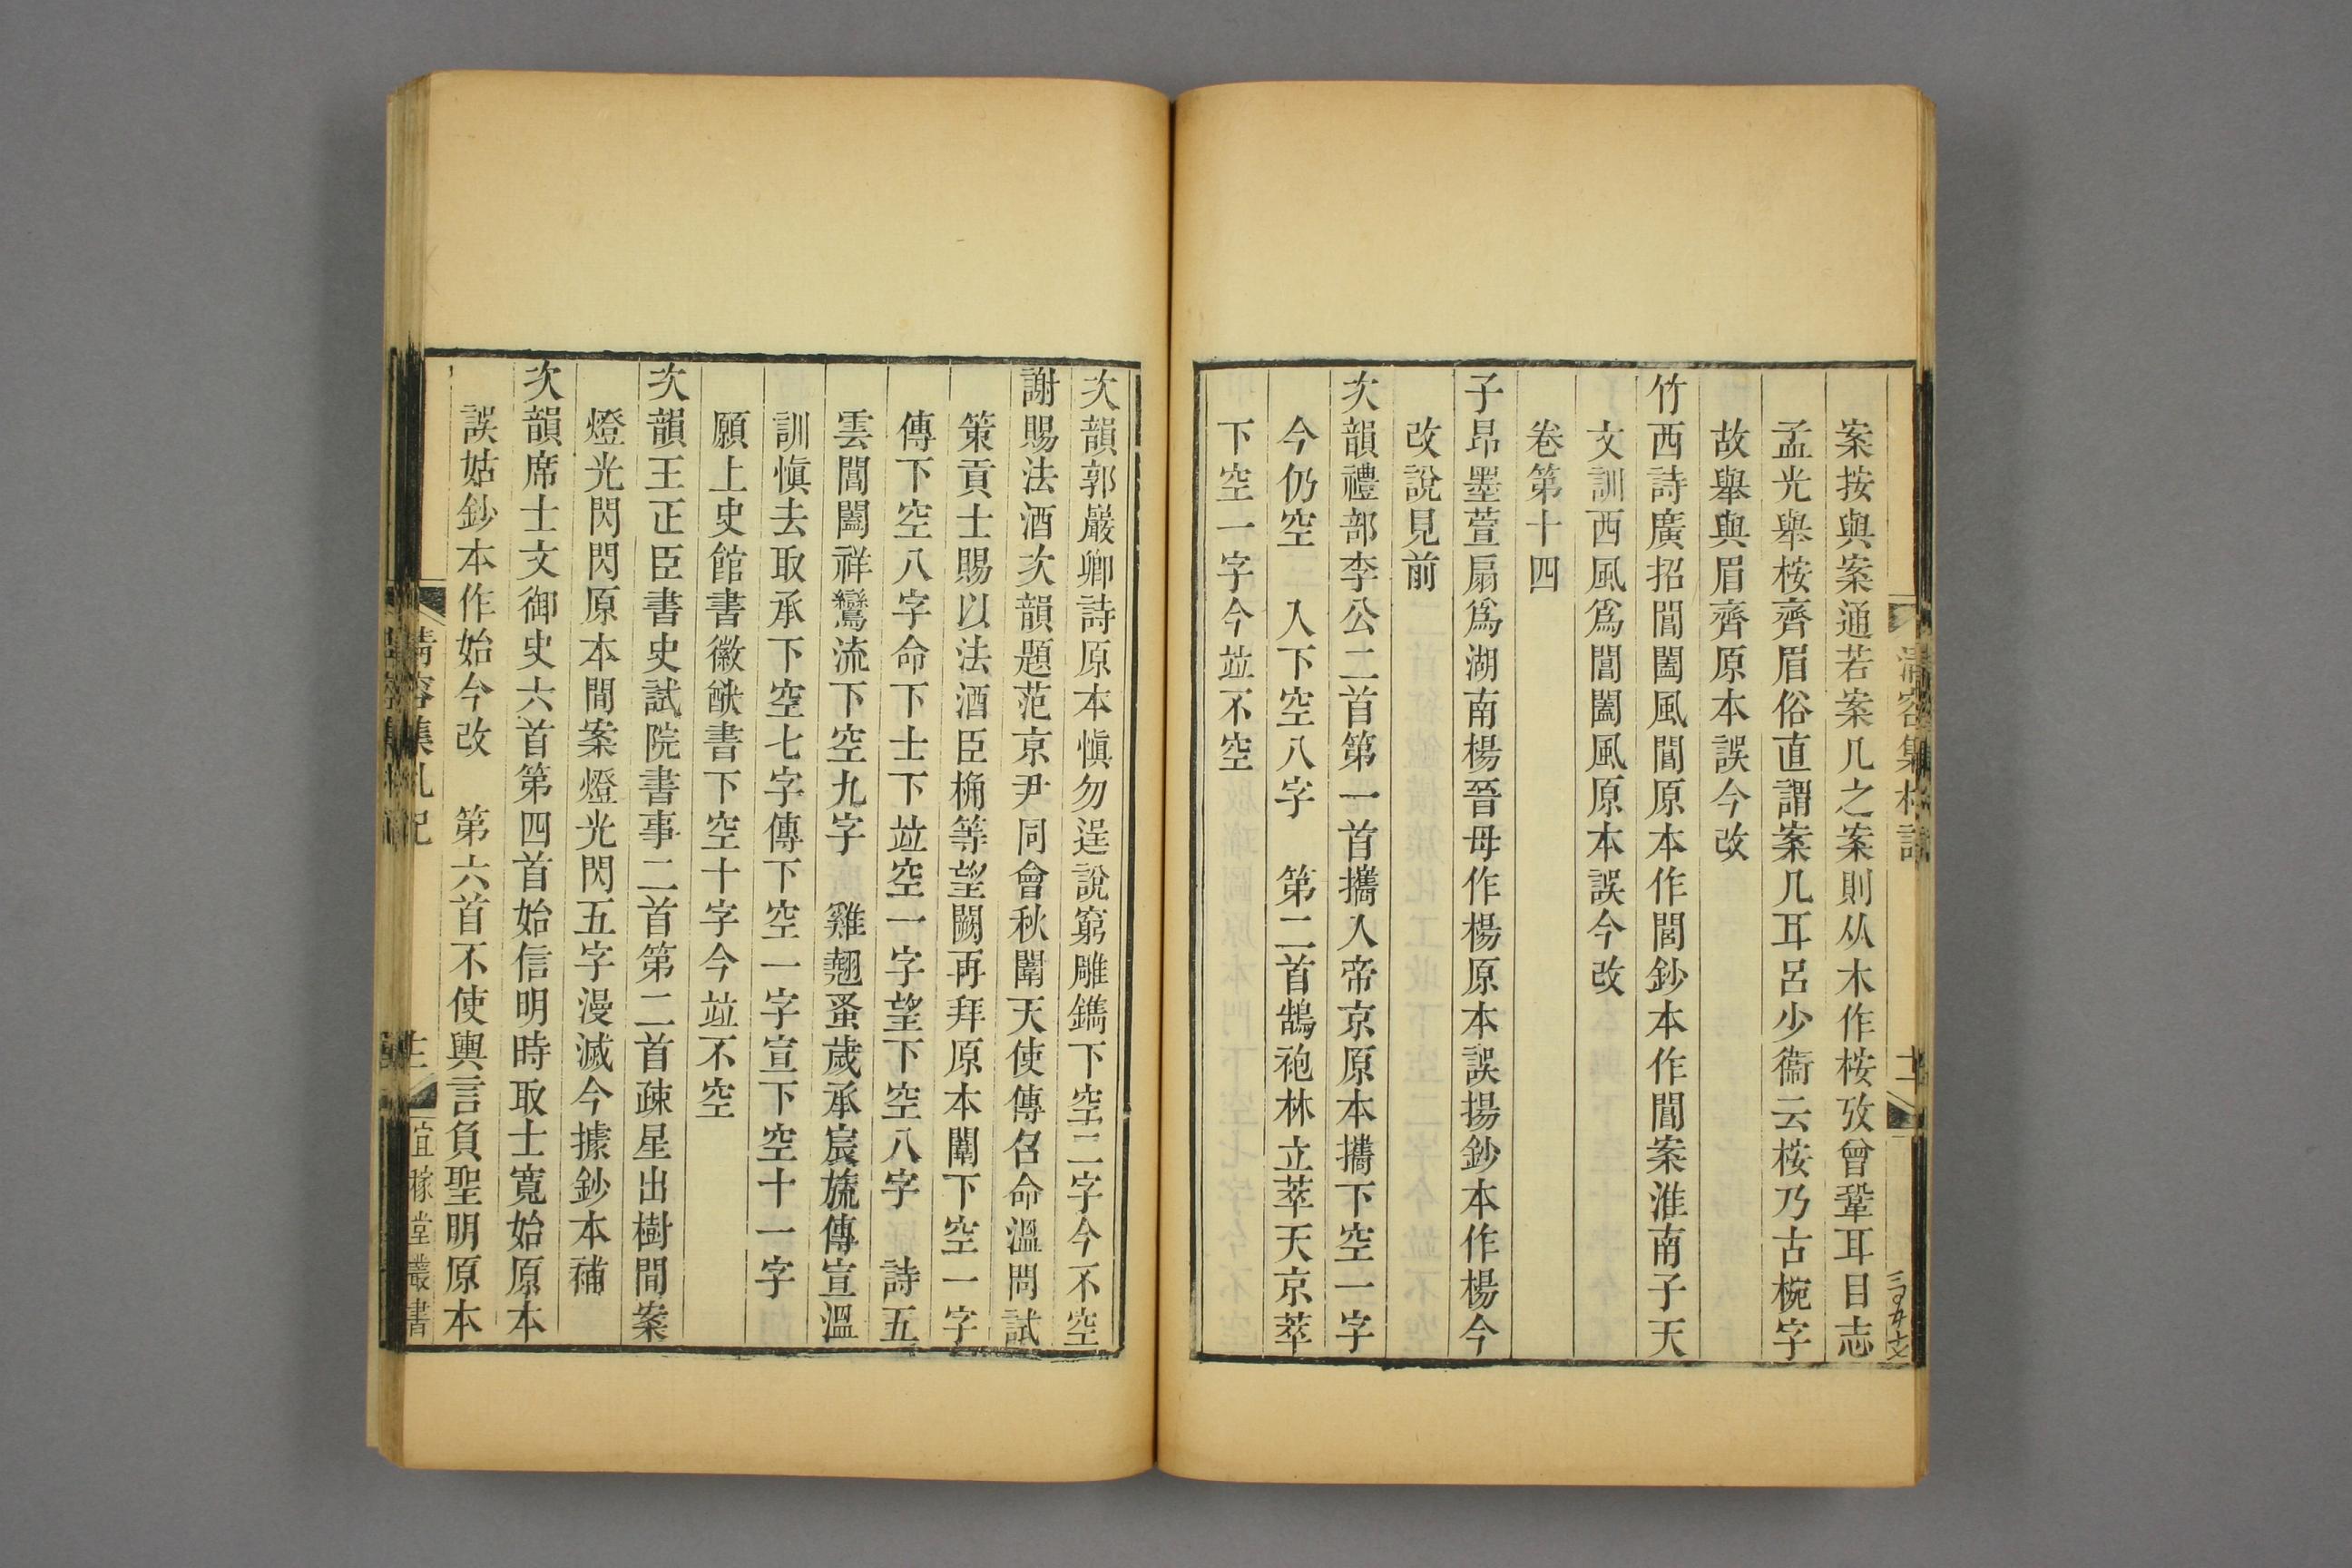 案按與案通若案几之案則从木作桉攷曾鞏耳目志
孟光舉桉齊眉俗直謂案几耳呂少衞云桉乃古椀字
故舉與眉齊原本誤今改
竹西詩廣招閶闔風閶原本作閭鈔本作閶案淮南子天
文訓西風爲閶闔風原本誤今改
卷第十四
子昂墨萱扇爲湖南楊晉母作楊原本誤揚鈔本作楊今
改說見前
次韻禮部李公二首第一首攜入帝京原本攜下空一字
今仍空　入下空八字　第二首鵠袍林立萃天京萃
下空一字今竝不空
次韻郭巖卿詩原本愼勿逞說窮雕鐫下空二字今不空
謝賜法酒次韻題范京尹同會秋闈天使傳召命溫問試
策貢士賜以法酒臣桷等望闕再拜原本闈下空一字
傳下空八字命下士下竝空一字望下空八字　詩五
雲閶闔祥鸞流下空九字　雞翹蚤歲承宸旒傳宣溫
訓愼去取承下空七字傳下空一字宣下空十一字
願上史館書徽猷書下空十字今竝不空
次韻王正臣書史試院書事二首第二首疎星出樹間案
燈光閃閃原本間案燈光閃五字漫滅今據鈔本補
次韻席士文御史六首第四首始信明時取士寬始原本
誤姑鈔本作始今改　第六首不使輿言負聖明原本
清容集札記
宜稼堂叢書